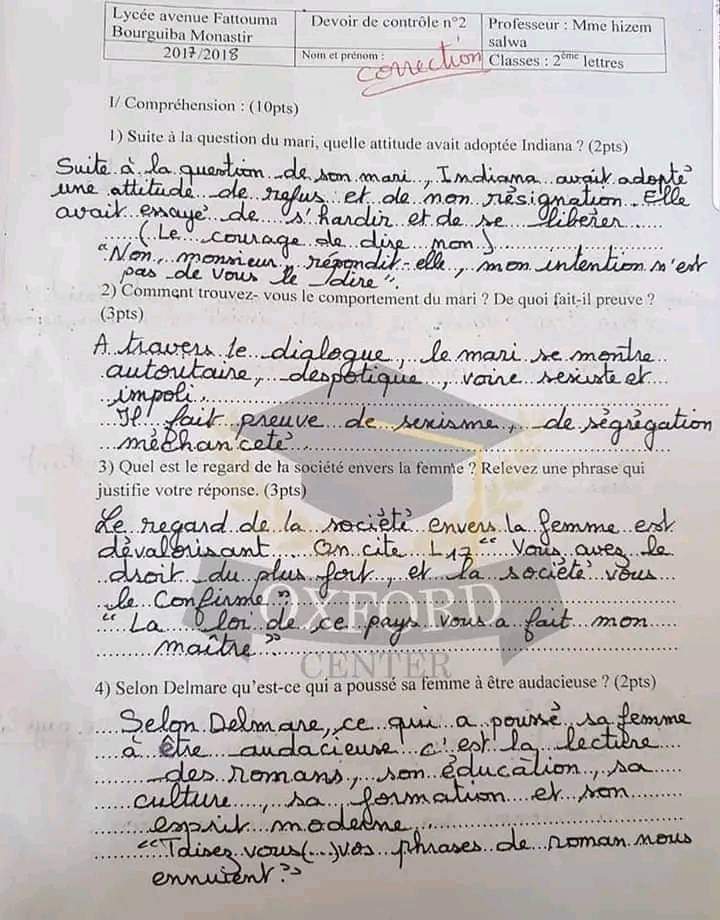 Lycée avenue Fattouma
Bourguiba Monastir
2017/2018
Devoir de contrôle n°2
Nom et prénom :
correction
Professeur : Mme hizem
salwa
Classes : 2ème lettres
I/ Compréhension : (10pts)
1) Suite à la question du mari, quelle attitude avait adoptée Indiana ? (2pts)
Suite à la question de son mari, Indiana avait adopté
une attitude de refus et de non résignation. Elle
avait essayé de s'hardir et de se libérer
(Le courage de dire non)
"Non, monsieur, répondit-elle, mon intention n'est
pas de vous le dire".
2) Comment trouvez- vous le comportement du mari ? De quoi fait-il preuve ?
(3pts)
A travers le dialogue, le mari se montre
autoutaire, despotique, voire sexiste et
impoli.
Il fait preuve de sexisme, de ségrégation
méchanceté
3) Quel est le regard de la société envers la femme ? Relevez une phrase qui
justifie votre réponse. (3pts)
Le regard de la société envers la femme est
dévalorisant. On cite L17 "Vous avez le
droit du plus fort, et la société vous
le confirme"
"La loi de ce pays vous a fait mon
maître"
OXFORD
CENTER
4) Selon Delmare qu'est-ce qui a poussé sa femme à être audacieuse ? (2pts)
Selon Delmare, ce qui a poussé sa femme
à être audacieuse c'est la lecture
des romans, son éducation, sa
culture, sa formation et son
esprit moderne.
"Taisez vous (...) vos phrases de roman nous
ennuient"